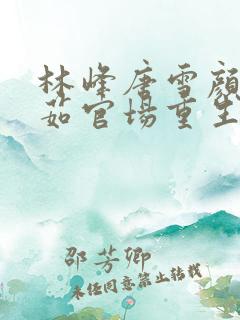 林峰唐雪颜
茹官场重生
邵芳卿
未经同意禁止转载